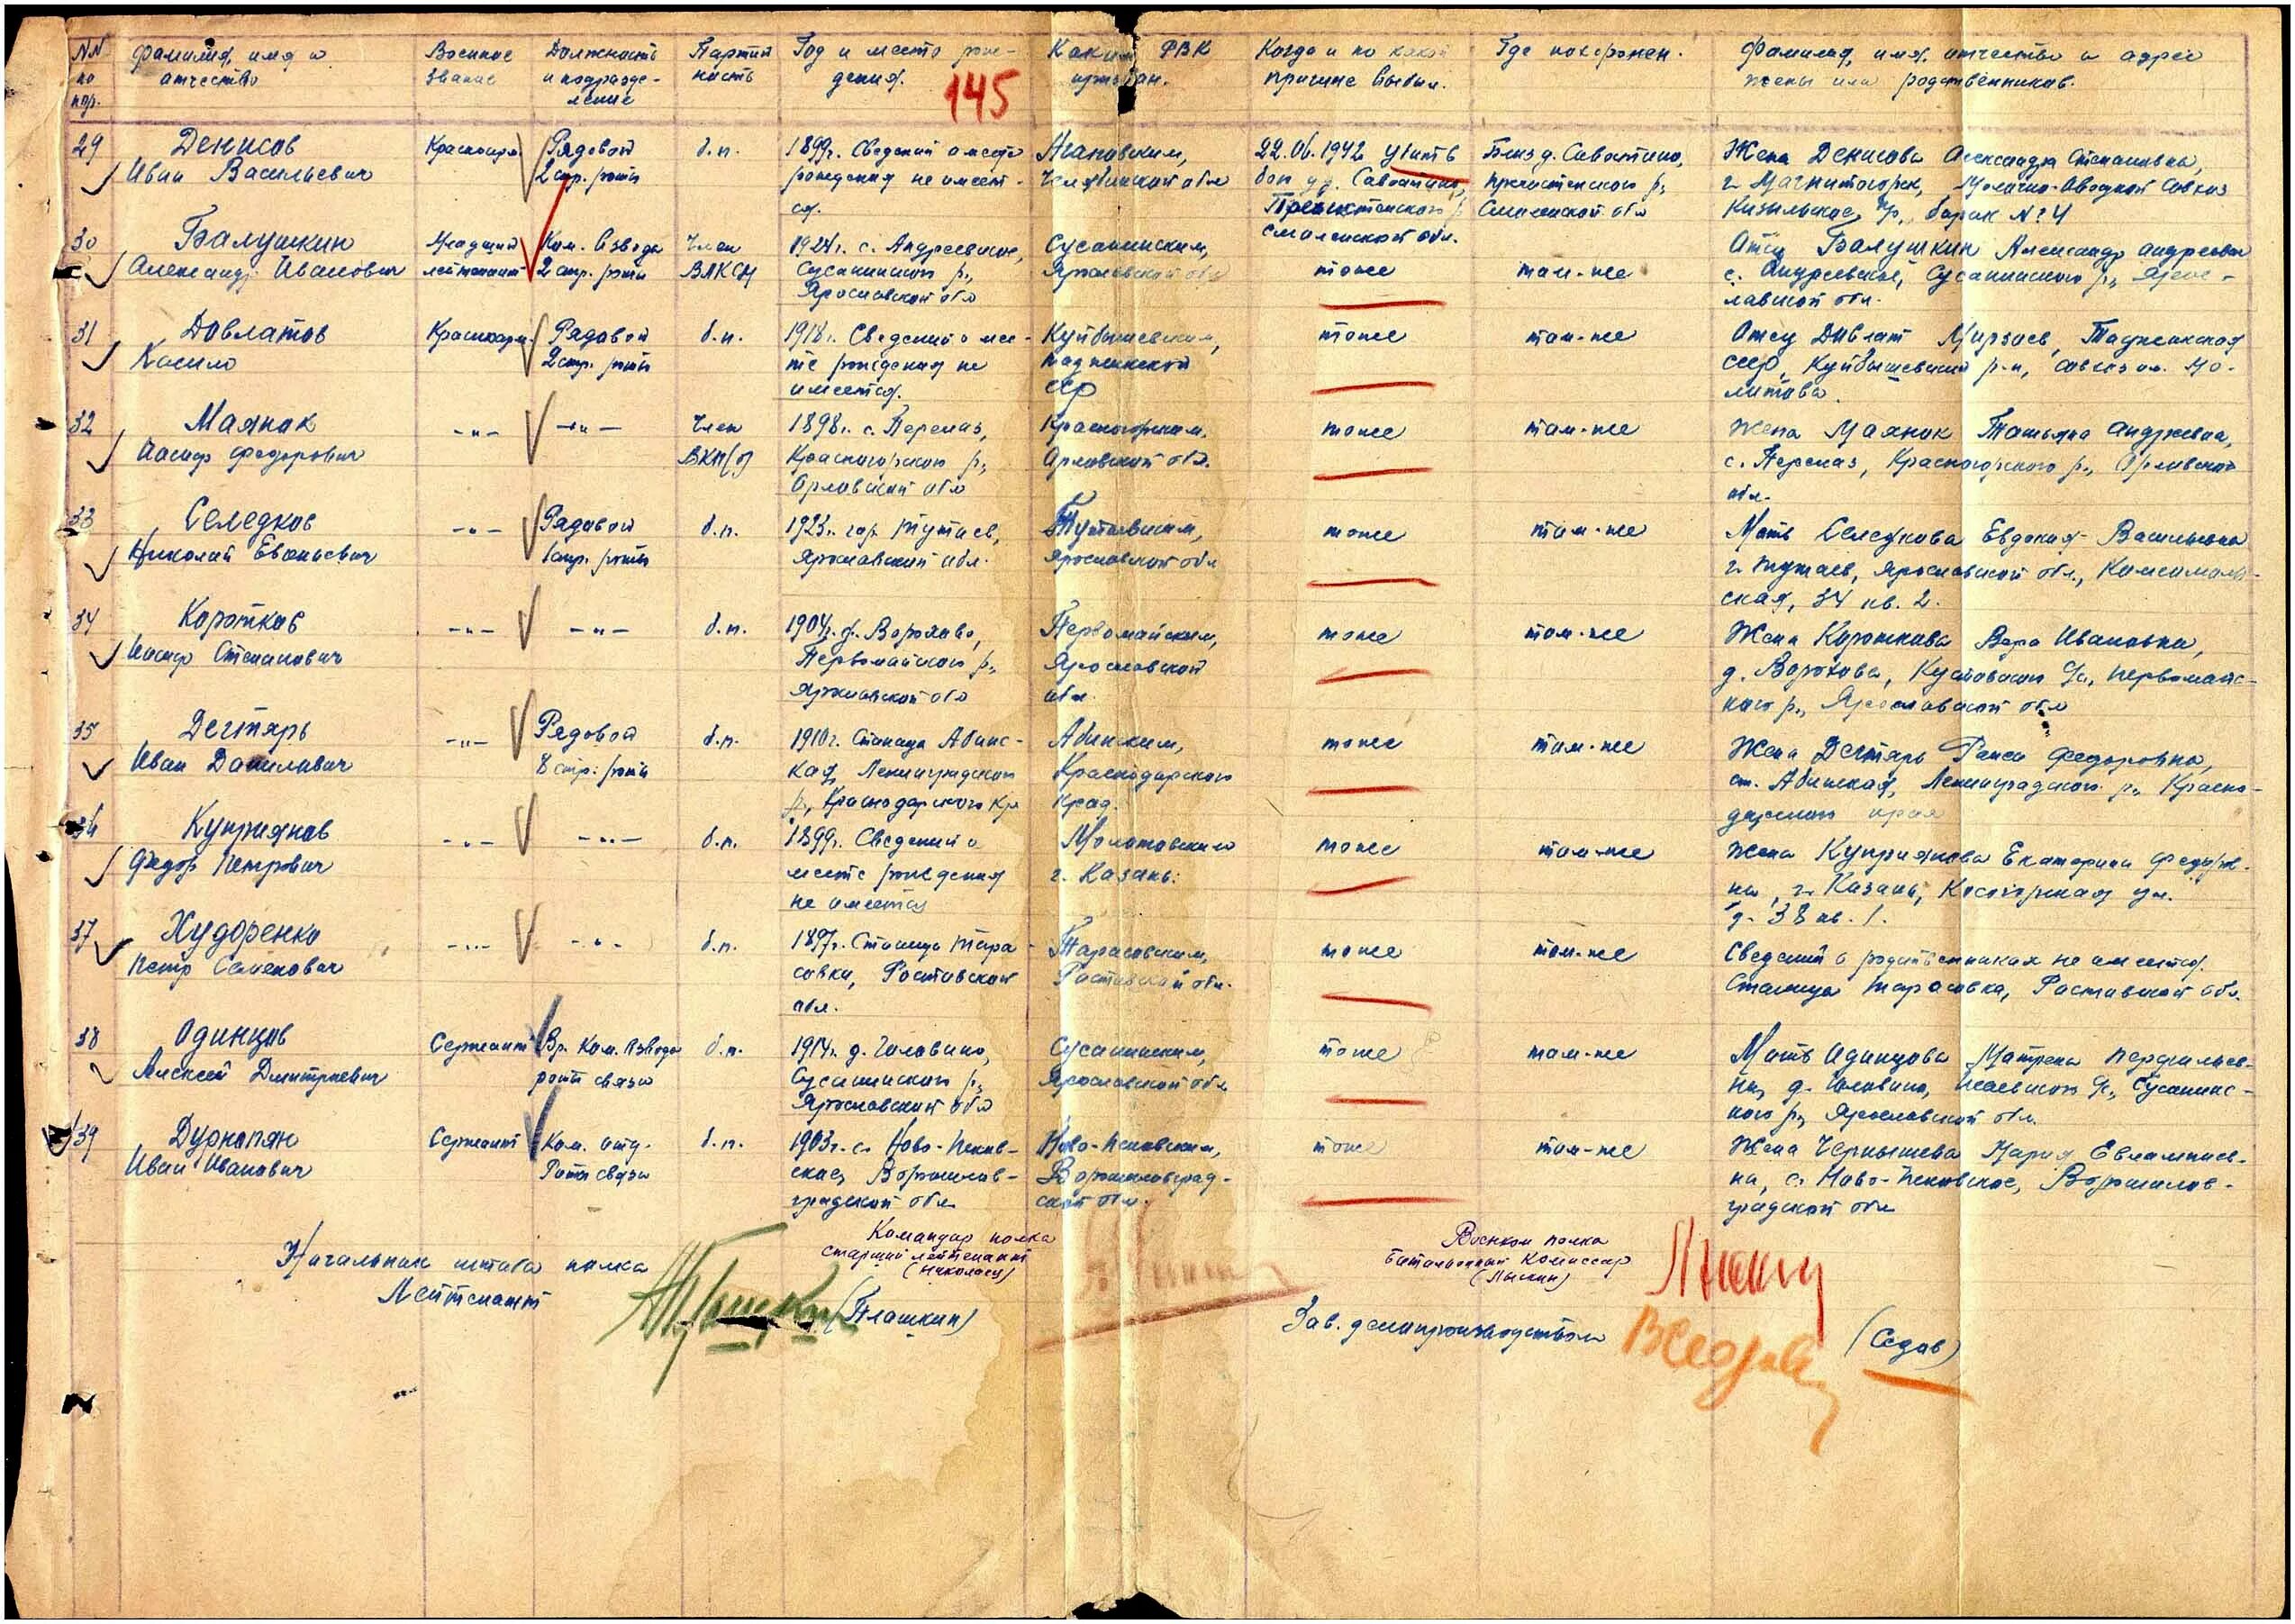 NN по пор.
Фамилия, имя и отчество
Военное звание
Должность и подразделение
Партийность
Год и место рождения.
Каким РВК призван.
Когда и по какой причине выбыл.
Где похоронен.
Фамилия, имя, отчество и адрес жены или родственников.
145
29
Денисов
Иван Васильевич
Красноарм.
Рядовой
2 стр. роты
б.п.
1899г. Сведений о месте
рождения не имеет-
ся.
Агаповским,
Челябинской обл
22.06.1942 убит в
бою у д. Савостино,
Пречистенского р.,
Смоленской обл.
Близ д. Савостино,
Пречистенского р.,
Смоленской обл
Жена Денисова Александра Степановна,
г. Магнитогорск, Молочно-Овощной Совхоз
Кизильское, барак № 4
30
Балушкин
Александр Иванович
Младший
лейтенант
Ком. взвода
2 стр. роты
Член
ВЛКСМ
1924г. с. Андреевское,
Сусанинского р.,
Ярославской обл
Сусанинским,
Ярославской обл
тоже
там-же
Отец Балушкин Александр Андреевич
с. Андреевское, Сусанинского р., Яросла-
вской обл.
31
Довлатов
Касимо
Красноарм.
Рядовой
2 стр. роты
б.п.
1918г. Сведений о мес-
те рождения не
имеется.
Куйбышевским,
Таджикской
ССР
тоже
там-же
Отец Довлат Мирзоев, Таджикская
ССР, Куйбышевский р-н, совхоз им. Мо-
литова.
32
Маянок
Иосиф Федорович
-"-
-"-
Член
ВКП(б)
1898г. с. Перелаз,
Красногорского р.,
Орловской обл
Красногорским,
Орловской обл.
тоже
там-же
Жена Маянок Татьяна Андреевна,
с. Перелаз, Красногорского р., Орловской
обл.
33
Селедков
Николай Евгеньевич
-"-
Рядовой
1 стр. роты
б.п.
1923г. гор. Тутаев,
Ярославской обл.
Тутаевским,
Ярославской обл
тоже
там-же
Мать Селедкова Евдокия Васильевна
г. Тутаев, Ярославской обл., Комсомоль-
ская, 34 кв. 2.
34
Коротков
Иосиф Степанович
-"-
-"-
б.п.
1904г. д. Ворохово,
Первомайского р.,
Ярославской обл
Первомайским,
Ярославской
обл.
тоже
там-же
Жена Короткова Вера Ивановна,
д. Ворохова, Кустовского с/с, Первомайс-
кого р., Ярославской обл
35
Дегтярь
Иван Данилович
-"-
Рядовой
8 стр. роты
б.п.
1910г. Станица Абинс-
кая, Ленинградского
р., Краснодарского кр
Абинским,
Краснодарского
края.
тоже
там-же
Жена Дегтярь Раиса Федоровна,
ст. Абинская, Ленинградского р., Красно-
дарского края
36
Куприянов
Федор Петрович
-"-
-"-
б.п.
1899г. Сведений о
месте рождения
не имеется
Молотовским
г. Казань.
тоже
там-же
Жена Куприянова Екатерина Федоров-
на, г. Казань, Косогорная ул.
д. 38 кв. 1.
37
Худоренко
Петр Семенович
-"-
-"-
б.п.
1897г. Станица Тара-
совка, Ростовской
обл.
Тарасовским,
Ростовской обл.
тоже
там-же
Сведений о родственниках не имеется.
Станица Тарасовка, Ростовской обл.
38
Одинцов
Алексей Дмитриевич
Сержант
Вр. Ком. взвода
роты связи
б.п.
1914г. д. Головино,
Сусанинского р.,
Ярославской обл
Сусанинским,
Ярославской обл
тоже
там-же
Мать Одинцова Матрена Перфильев-
на, д. Головино, Исаевского с/с, Сусанинс-
кого р., Ярославской обл.
39
Дурнопян
Иван Иванович
Сержант
Ком. отд.
Роты связи
б.п.
1903г. с. Ново-Псков-
ское, Ворошилов-
градской обл
Ново-Псковским,
Ворошиловград-
ской обл.
тоже
там-же
Жена Чернышева Мария Евлампиев-
на, с. Ново-Псковское, Ворошилов-
градской обл
Командир полка
старший лейтенант
(Николаец)
Военком полка
Батальонный Комиссар
(Лыкин)
Начальник штаба полка
Лейтенант
(Плашкин)
Зав. делопроизводством
(Седов)